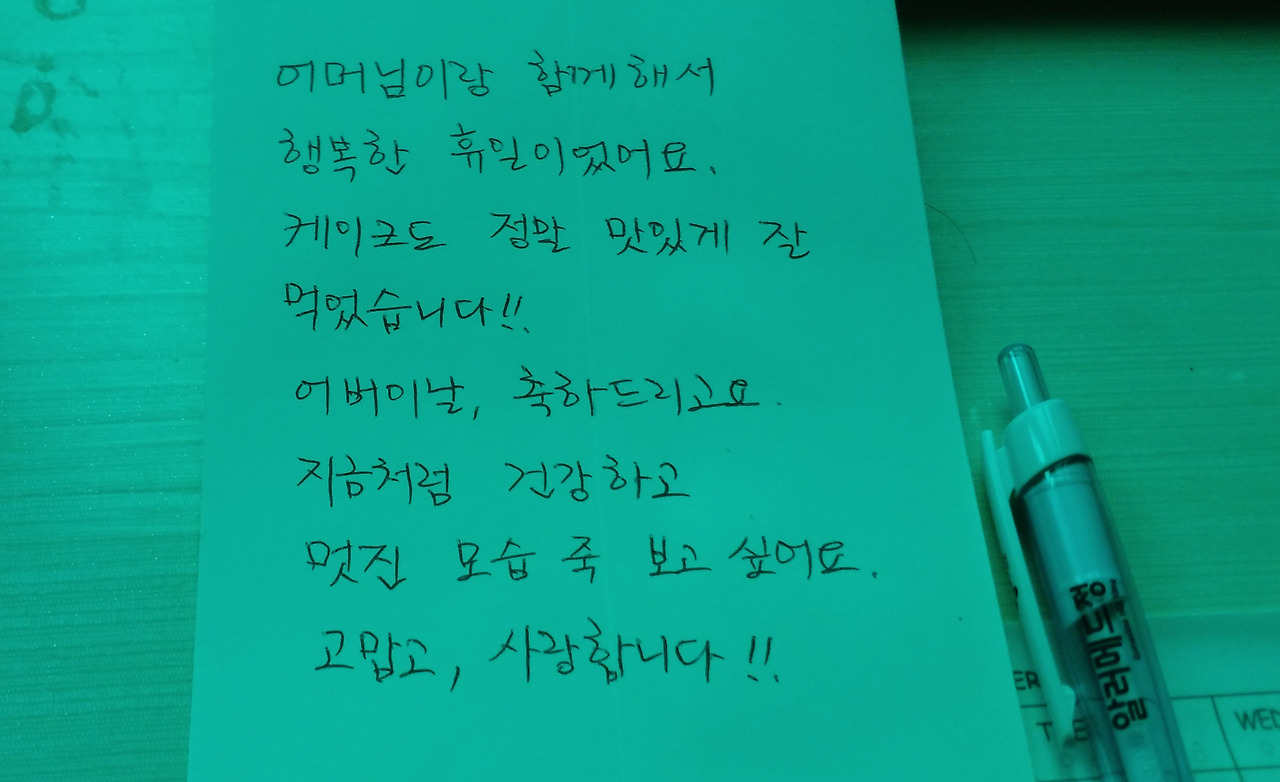 어머님이랑 함께해서
행복한 휴일이었어요.
케이크도 정말 맛있게 잘
먹었습니다!!
어버이날, 축하드리고요.
지금처럼 건강하고
멋진 모습 죽 보고 싶어요.
고맙고, 사랑합니다!!
ER
TUE
WED